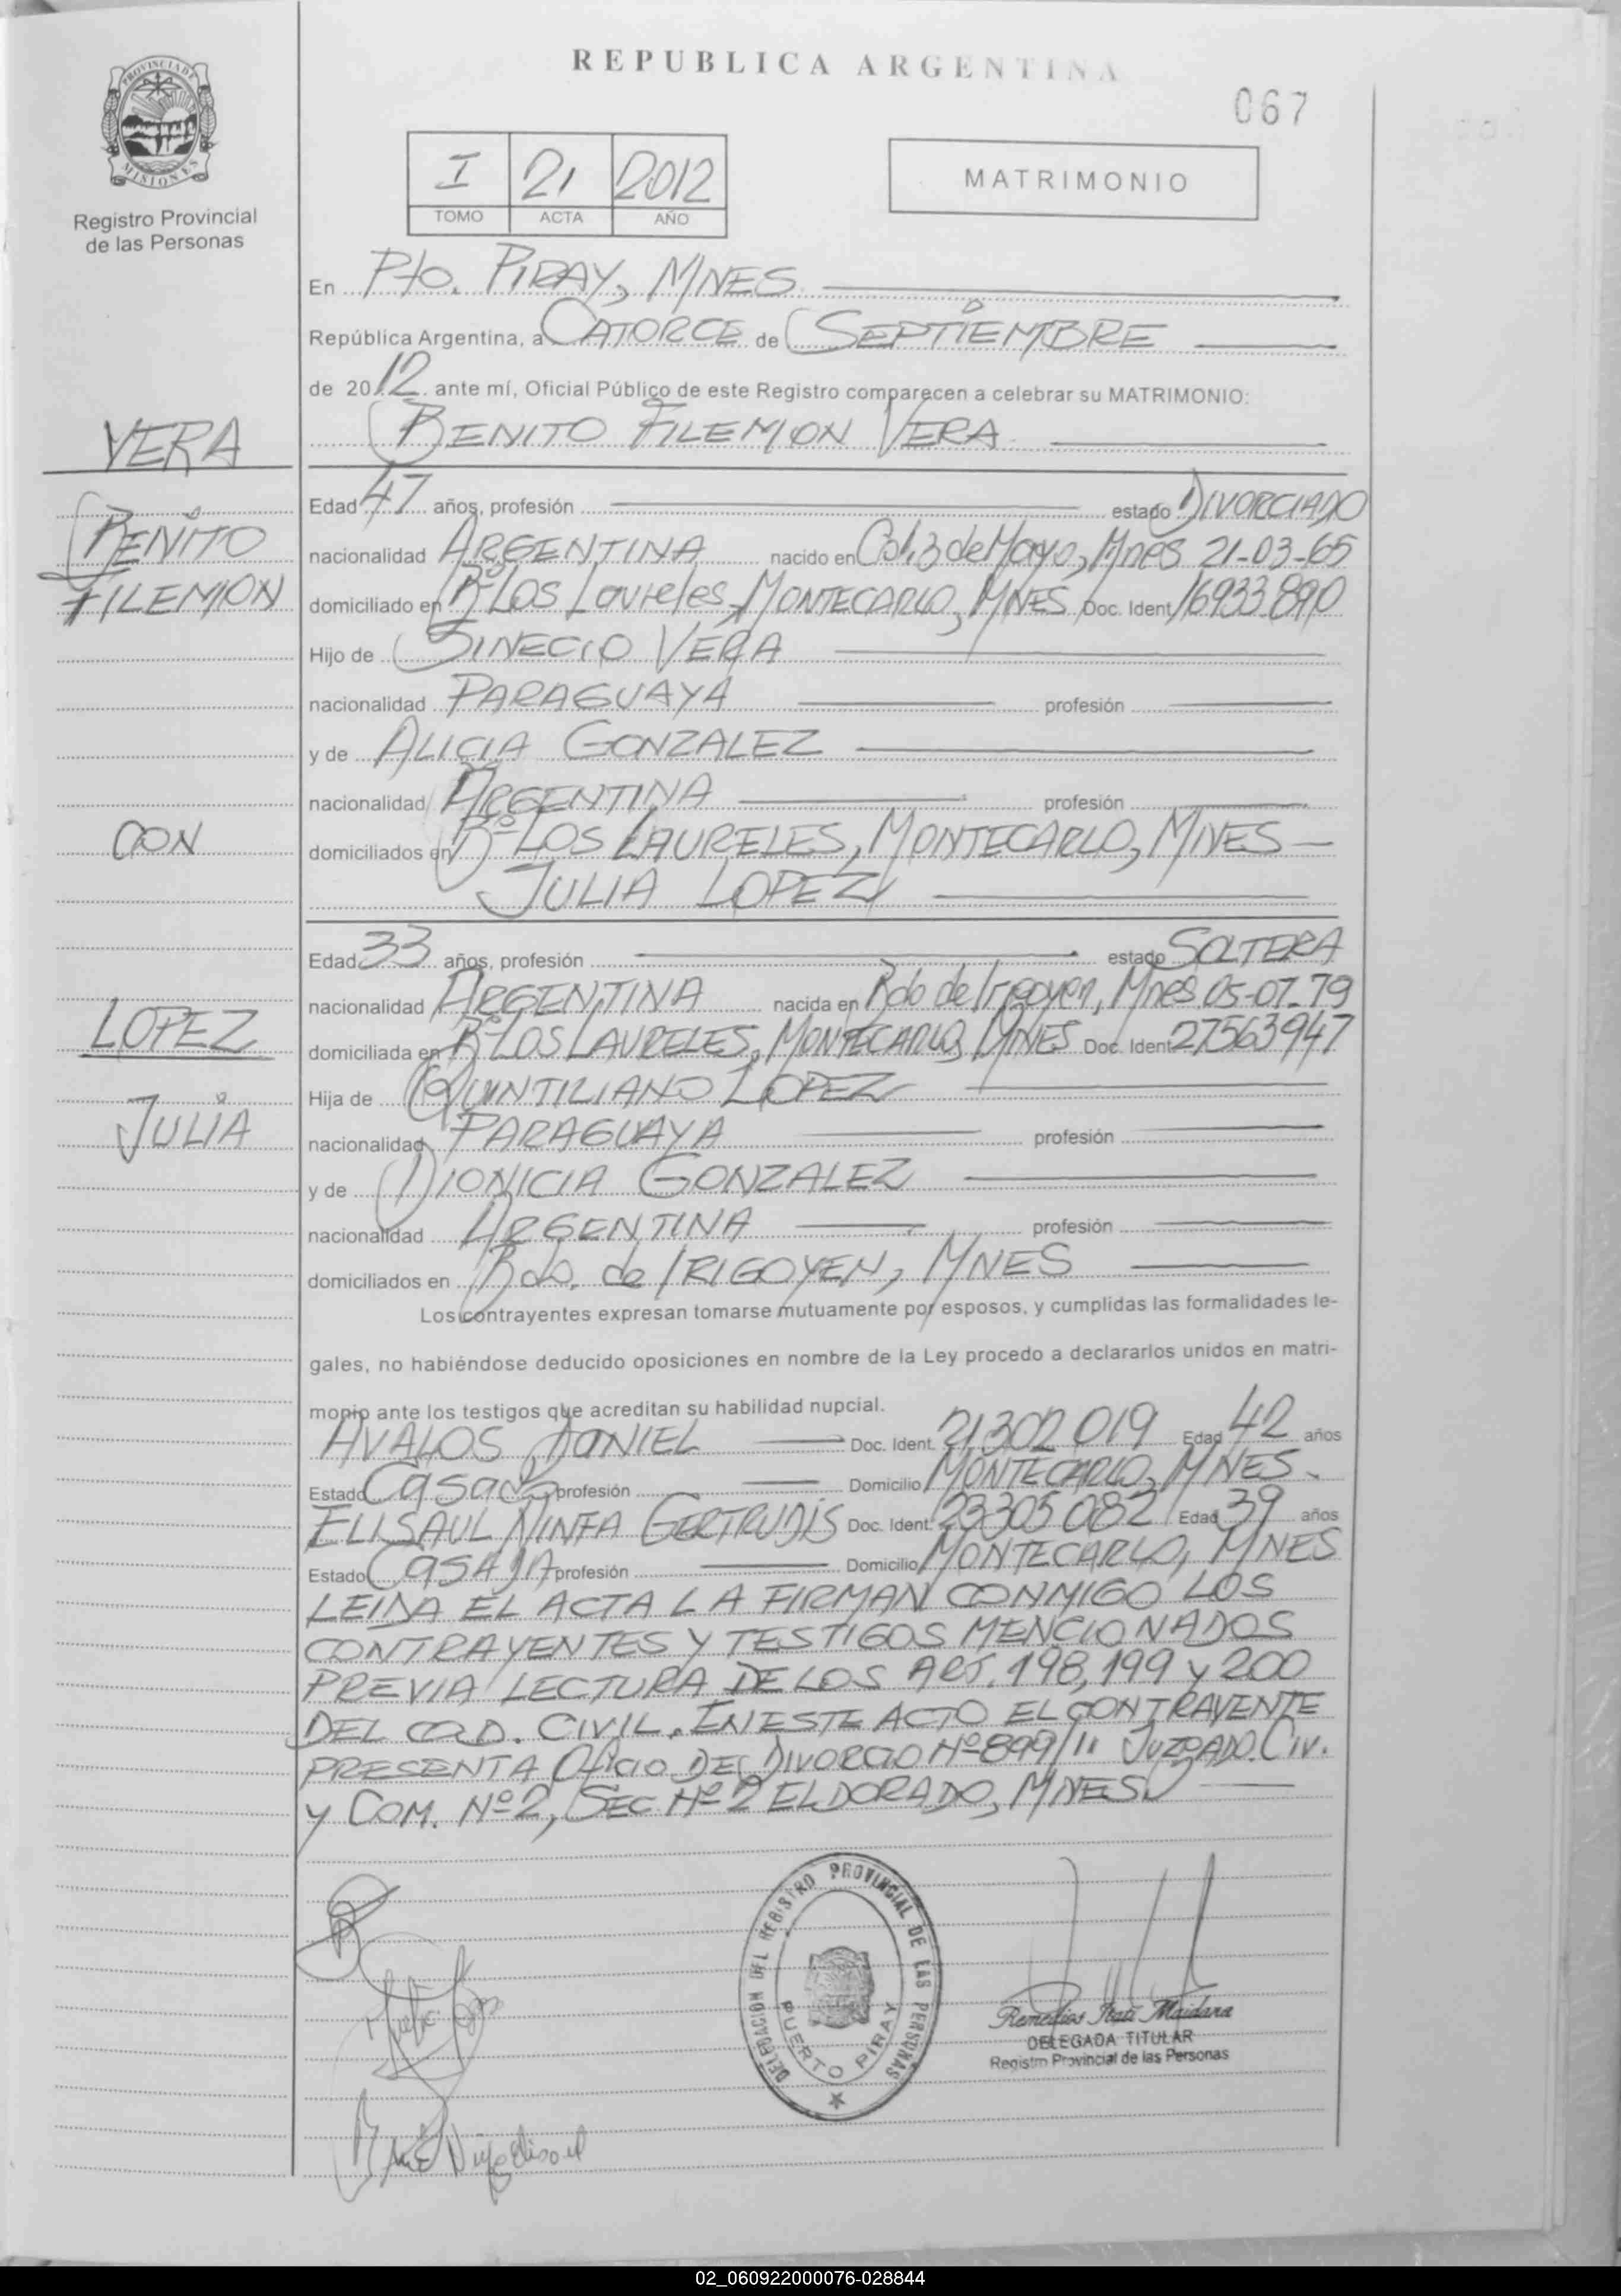 REPUBLICA ARGENTINA
067
PROVINCIA DE
MISIONES
Registro Provincial
de las Personas
I 21 2012
TOMO ACTA AÑO
MATRIMONIO
En Pto. PIRAY, MNES
República Argentina, a CATORCE de SEPTIEMBRE
de 2012 ante mí, Oficial Público de este Registro comparecen a celebrar su MATRIMONIO:
BENITO FILEMON VERA
VERA
BENITO
FILEMON
CON
LOPEZ
JULIA
Edad 47 años, profesión estado DIVORCIADO
nacionalidad ARGENTINA nacido en Col. 3 de Mayo, Mnes 21-03-65
domiciliado en Bº Los Laureles, MONTECARLO, MNES Doc. Ident 16933890
Hijo de SINECIO VERA
nacionalidad PARAGUAYA profesión
y de ALICIA GONZALEZ
nacionalidad ARGENTINA profesión
domiciliados en Bº LOS LAURELES, MONTECARLO, MNES
JULIA LOPEZ
Edad 33 años, profesión estado SOLTERA
nacionalidad ARGENTINA nacida en Bdo de Irigoyen, Mnes 05-07-79
domiciliada en Bº LOS LAURELES, MONTECARLO, MNES Doc. Ident 27563947
Hija de QUINTILIANO LOPEZ
nacionalidad PARAGUAYA profesión
y de DIONICIA GONZALEZ
nacionalidad ARGENTINA profesión
domiciliados en Bdo. de IRIGOYEN, MNES
Los contrayentes expresan tomarse mutuamente por esposos, y cumplidas las formalidades le-
gales, no habiéndose deducido oposiciones en nombre de la Ley procedo a declararlos unidos en matri-
monio ante los testigos que acreditan su habilidad nupcial.
AVALOS DANIEL Doc. Ident. 21302019 Edad 42 años
Estado Casado profesión Domicilio MONTECARLO, MNES.
ELISAUL NINFA GERTRUDIS Doc. Ident. 23305082 Edad 39 años
Estado CASADA profesión Domicilio MONTECARLO, MNES
LEIDA EL ACTA LA FIRMAN CONMIGO LOS
CONTRAYENTES Y TESTIGOS MENCIONADOS
PREVIA LECTURA DE LOS ART. 198, 199 y 200
DEL COD. CIVIL. EN ESTE ACTO EL CONTRAYENTE
PRESENTA Oficio DE DIVORCIO Nº 899/11 JUZGADO. CIV.
y COM. Nº 2, SEC Nº 2 ELDORADO, MNES
DELEGACION DEL REGISTRO PROVINCIAL DE LAS PERSONAS
PUERTO PIRAY
Remedios Itatí Maidana
DELEGADA TITULAR
Registro Provincial de las Personas
02_060922000076-028844